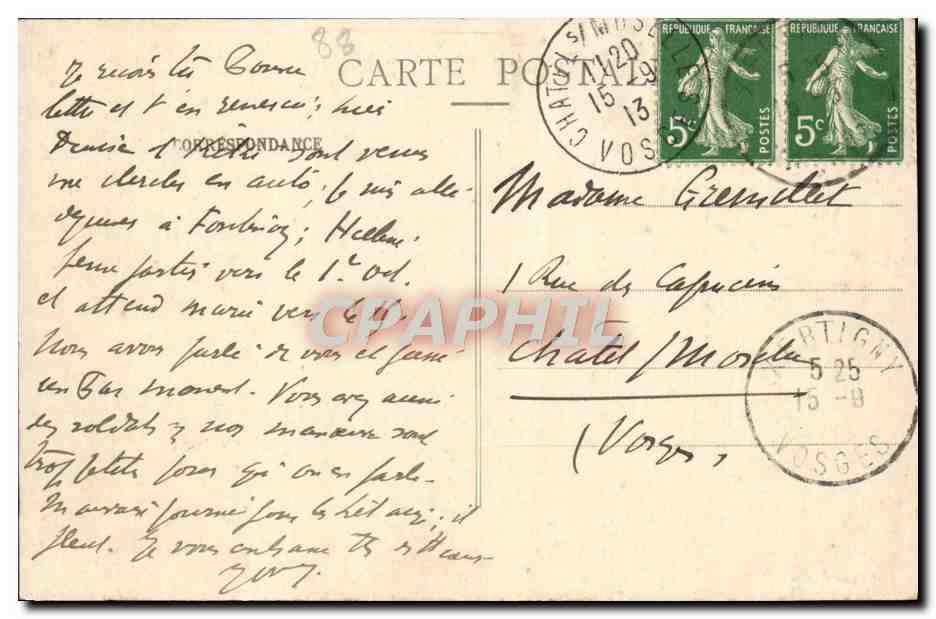 88
CARTE POSTALE
CORRESPONDANCE
REPUBLIQUE FRANÇAISE
5c POSTES
REPUBLIQUE FRANÇAISE
5c POSTES
CHATEL S/ MOSELLE
11 20
15 - 9
13
VOSGES
Je reçois ta bonne
lettre et t'en remercie;
Denise et sont venus
me chercher en auto, je suis allé
à Fontenoy; Hélène
partie vers le 1er Oct.
et attend vers le
Nous avons parlé de vous et passé
un bon moment. Vous avez aussi
des soldats, nos manœuvres sont
trop petites pour qu'on en parle.
Mauvaise journée pour les; il
pleut. Je vous embrasse
Madame Gremillet
1 Rue des Capucins
Châtel s/Moselle
(Vosges)
XERTIGNY
5 25
15 - 9
VOSGES
CPAPHIL